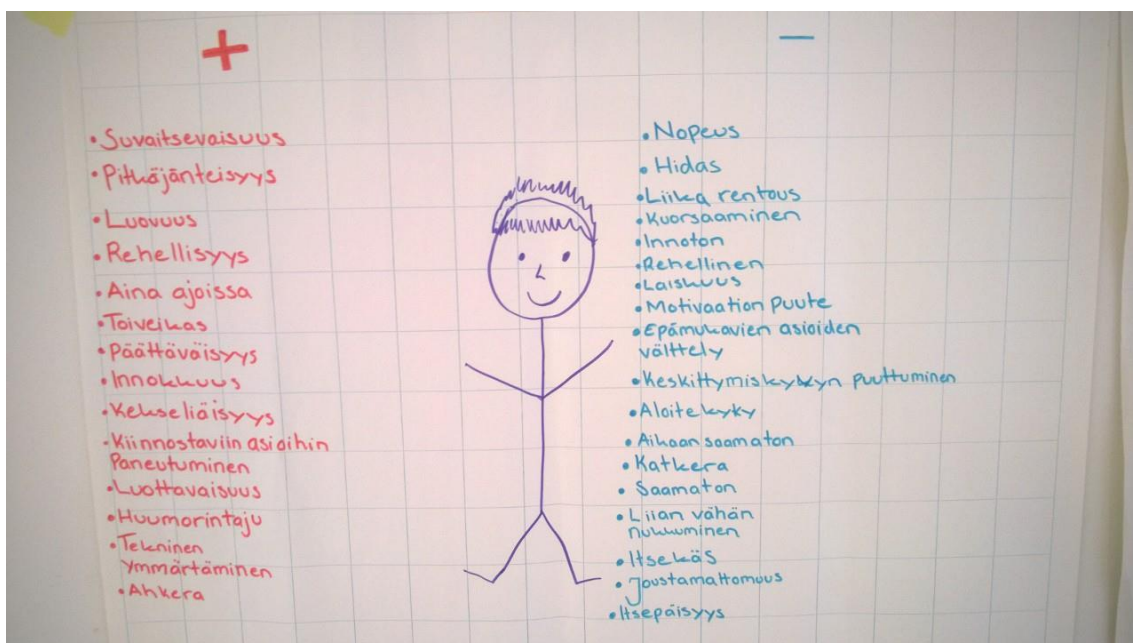 +
• Suvaitsevaisuus
• Pitkäjänteisyys
• Luovuus
• Rehellisyys
• Aina ajoissa
• Toiveikas
• Päättäväisyys
• Innokkuus
• Kekseliäisyys
• Kiinnostaviin asioihin
Paneutuminen
• Luottavaisuus
• Huumorintaju
• Tekninen
ymmärtäminen
• Ahkera
−
• Nopeus
• Hidas
• Liika rentous
• Kuorsaaminen
• Innoton
• Rehellinen
• Laiskuus
• Motivaation puute
• Epämukavien asioiden
välttely
• Keskittymiskykyn puuttuminen
• Aloitekyky
• Aikaan saamaton
• Katkera
• Saamaton
• Liian vähän
nukkuminen
• Itsekäs
• Joustamattomuus
• Itsepäisyys